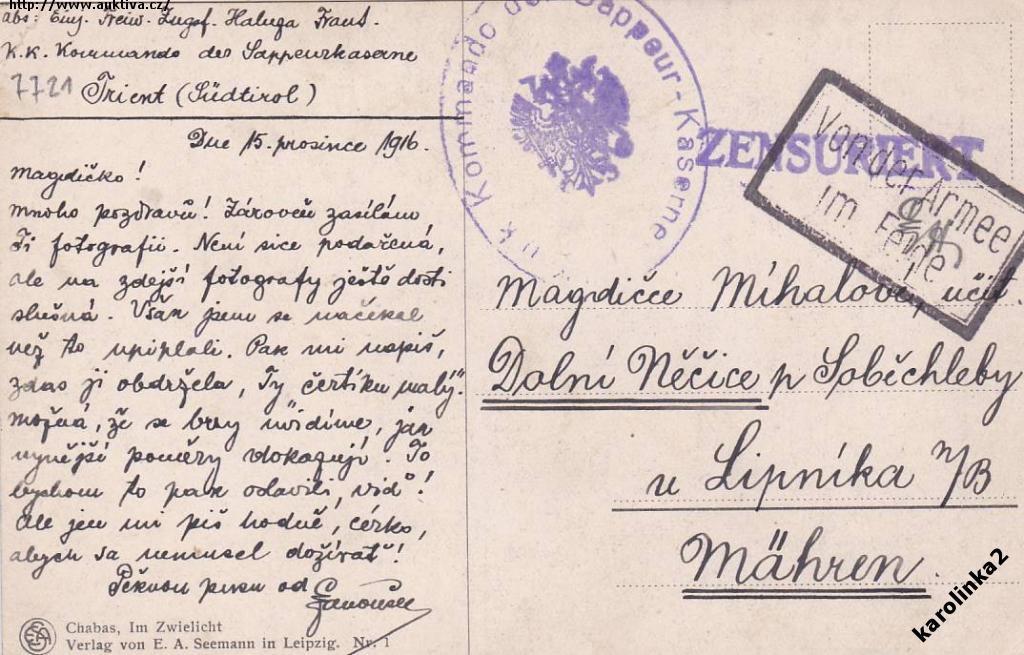 http://www.auktiva.cz/
abs: Einj. Freiw. Zugsf. Haluga Frant.
K.K. Kommando der Sappeurkaserne
7721 Trient (Südtirol)
Dne 15. prosince 1916.
Magdičko!
mnoho pozdravů! Zároveň zasílám
Ti fotografii. Není sice podařená,
ale na zdejší fotografy ještě dosti
slušná. Však jsem se načekal
než to upiplali. Pak mi napiš,
zdas ji obdržela, Ty čertíku malý.
možná, že se brzy uvidíme, jak
nynější poměry dokazují. To
bychom to pak oslavili, viď!
Ale jen mi piš hodně, cérko,
abych sa nemusel dožírať!
Pěknou pusu od
Kommando der Sappeur-Kaserne
ZENSURIERT
Von der Armee
im Felde
Magdičce Mihalovy učit.
Dolní Něčice p Soběchleby
u Lipníka n/B
Mähren.
Chabas, Im Zwielicht
Verlag von E. A. Seemann in Leipzig. Nr. 1
karolinka2